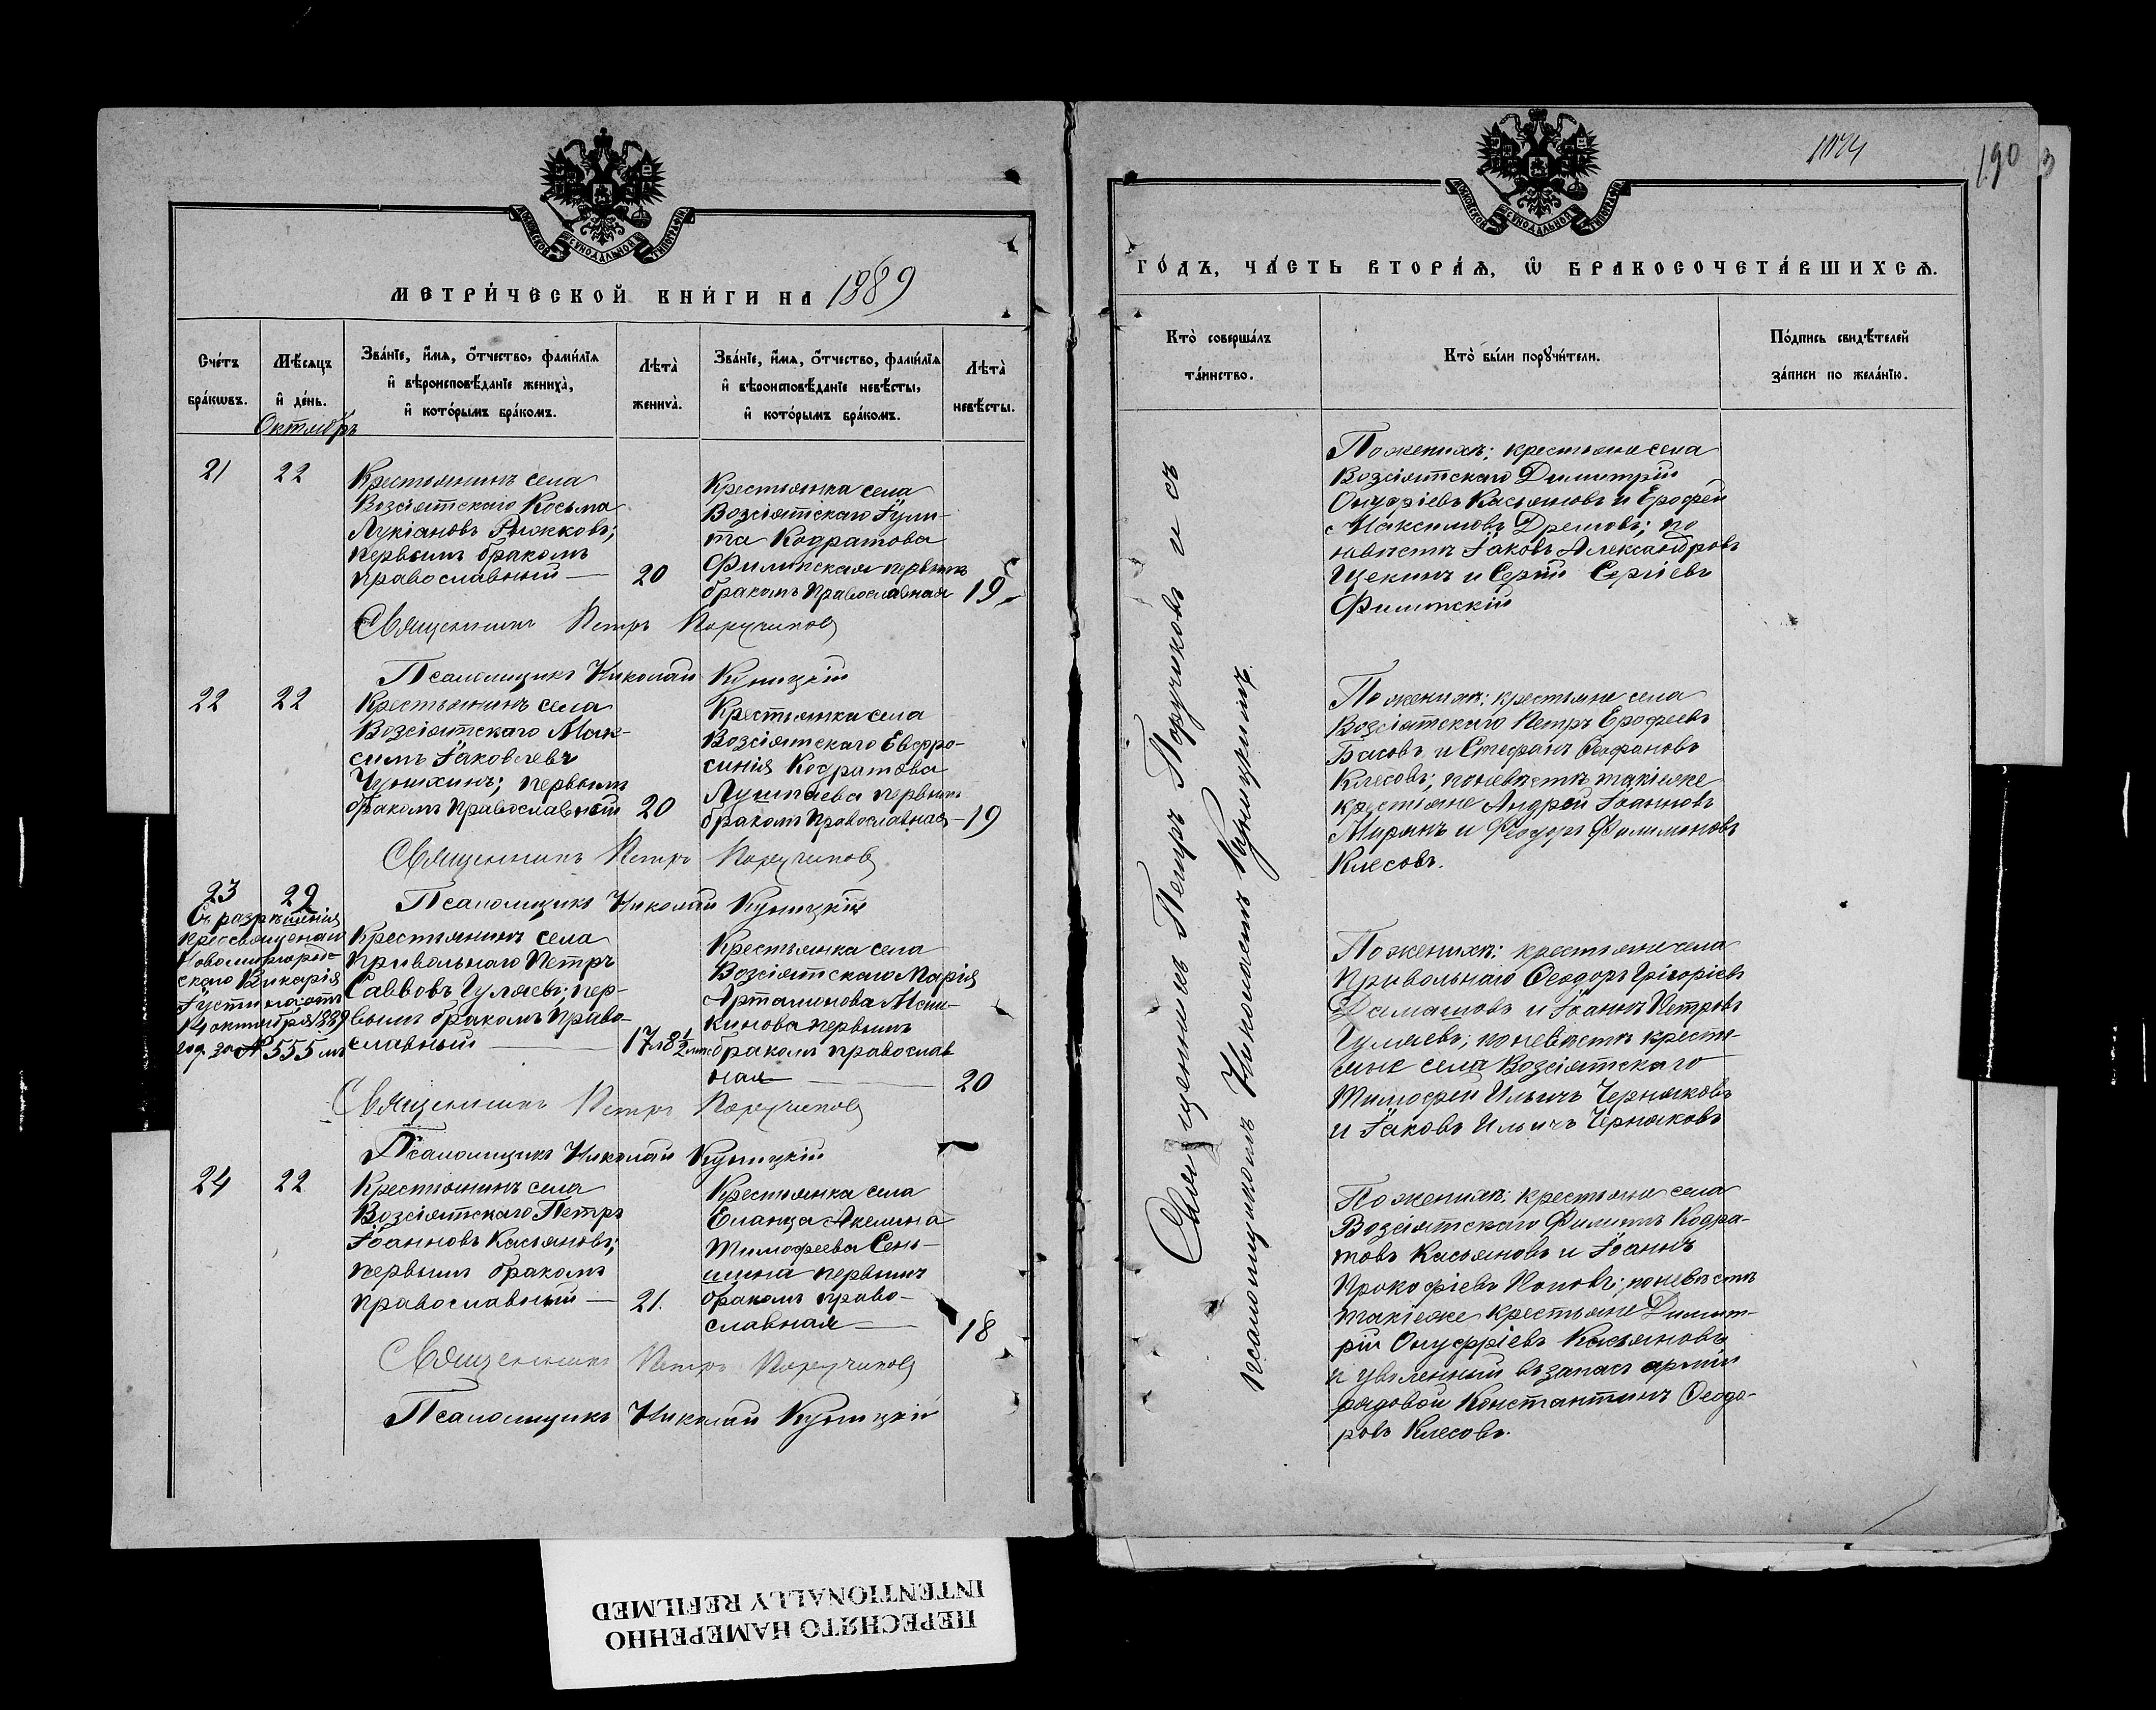 МОСКОВСКОЙ СѴНОДАЛЬНОЙ ТИПОГРАФІИ
МЕТРИ́ЧЕСКОЙ КНИ́ГИ НА 1889
Сче́тъ бра́кѡвъ.
Мѣ́сяцъ и҆ де́нь.
Зва́нїе, и҆́мѧ, ѻ҆́тчество, фами́лїѧ и҆ вѣроисповѣ́данїе жениха̀, и҆ кото́рымъ бра́комъ.
Лѣта̀ жениха̀.
Зва́нїе, и҆́мѧ, ѻ҆́тчество, фами́лїѧ и҆ вѣроисповѣ́данїе невѣ́сты, и҆ кото́рымъ бра́комъ.
Лѣта̀ невѣ́сты.
Октябрь
21
22
Крестьянинъ села
Возсіятскаго Косьма
Лукіановъ Рыжковъ;
первымъ бракомъ
православный —
20
Крестьянка села
Возсіятскаго Іули-
та Кодратова
Филипская первымъ
бракомъ православная
19
Священникъ Петръ Поручиковъ
Псаломщикъ Николай Куницкій
22
22
Крестьянинъ села
Возсіятскаго Мак-
симъ Іаковлевъ
первымъ
бракомъ православный
20
Крестьянка села
Возсіятскаго Евфро-
синія Кодратова
первымъ
бракомъ православная
19
Священникъ Петръ Поручиковъ
Псаломщикъ Николай Куницкій
23
29
Съ разрѣшенія
преосвященнаго
Новомиргород-
скаго Викарія
Іустина отъ
14 октября 1889
год. за № 555 мъ
Крестьянинъ села
Привольнаго Петръ
Саввовъ Гуляевъ; пер-
вымъ бракомъ право-
славный —
17 л 8½ м
Крестьянка села
Возсіятскаго Марія
Артамонова
первымъ
бракомъ православ
ная —
20
Священникъ Петръ Поручиковъ
Псаломщикъ Николай Куницкій
24
22
Крестьянинъ села
Возсіятскаго Петръ
Іоанновъ Касьяновъ;
первымъ бракомъ
православный —
21.
Крестьянка села
Еланца Акелина
Тимофеева Сень-
первымъ
бракомъ право-
славная —
18
Священникъ Петръ Поручиковъ
Псаломщикъ Николай Куницкій
МОСКОВСКОЙ СѴНОДАЛЬНОЙ ТИПОГРАФІИ
190
ГО́ДЪ, ЧА́СТЬ ВТОРА́Ѧ, Ѡ҆ БРАКОСОЧЕТА́ВШИХСѦ.
Кто̀ соверша́лъ та́инство.
Кто̀ бы́ли порꙋчи́тели.
По́дпись свидѣ́телей за́писи по жела́нїю.
Священникъ Петръ Поручиковъ и съ
псаломщикомъ Николаемъ Куницкимъ.
По женихѣ: крестьяне села
Возсіятскаго Димитрій
Онуфріевъ Касьяновъ и Ерофей
Максимовъ Дремовъ; по
невѣстѣ Іаковъ Александровъ
Щекинъ и Сергій Сергіевъ
Филипскій
По женихѣ: крестьяне села
Возсіятскаго Петръ Ерофеевъ
Басовъ и Стефанъ Стефановъ
Клесовъ; по невѣстѣ такіеже
крестьяне Андрей Іоанновъ
и Феодоръ Филимоновъ
Клесовъ.
По женихѣ: крестьяне села
Привольнаго Феодоръ Григоріевъ
и Іоаннъ Петровъ
Гуляевъ; по невѣстѣ кресть-
яне села Возсіятскаго
Тимофей Ильичъ Черняковъ
и Іаковъ Ильичъ Черняковъ
По женихѣ: крестьяне села
Возсіятскаго Филиппъ Кодра-
товъ Касьяновъ и Іоаннъ
Прокофіевъ Поповъ; по невѣстѣ
такіеже крестьяне Димит-
рій Онуфріевъ Касьяновъ
и уволенный въ запасъ арміи
рядовой Константинъ Феодо-
ровъ Клесовъ.
ПЕРЕСНЯТО НАМЕРЕННО
INTENTIONALLY REFILMED